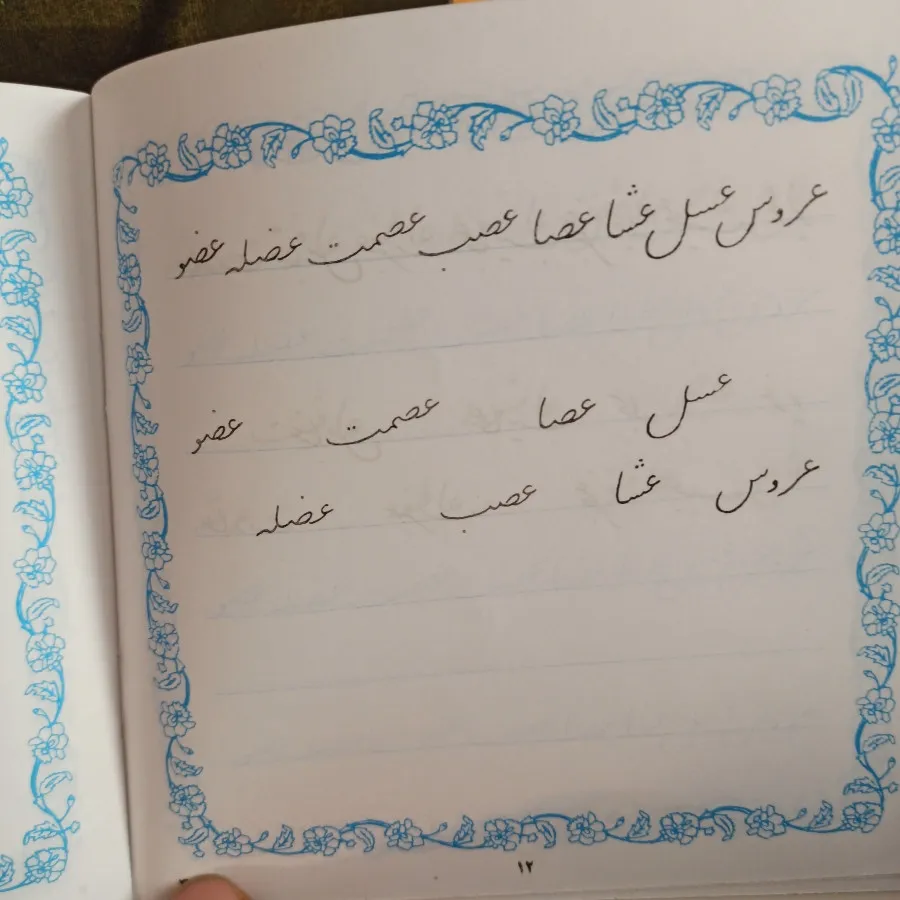 عروس عسل عشا عصا عصب عصمت عضله عضو
عسل عصا عصمت عضو
عروس عشا عصب عضله
۱۲